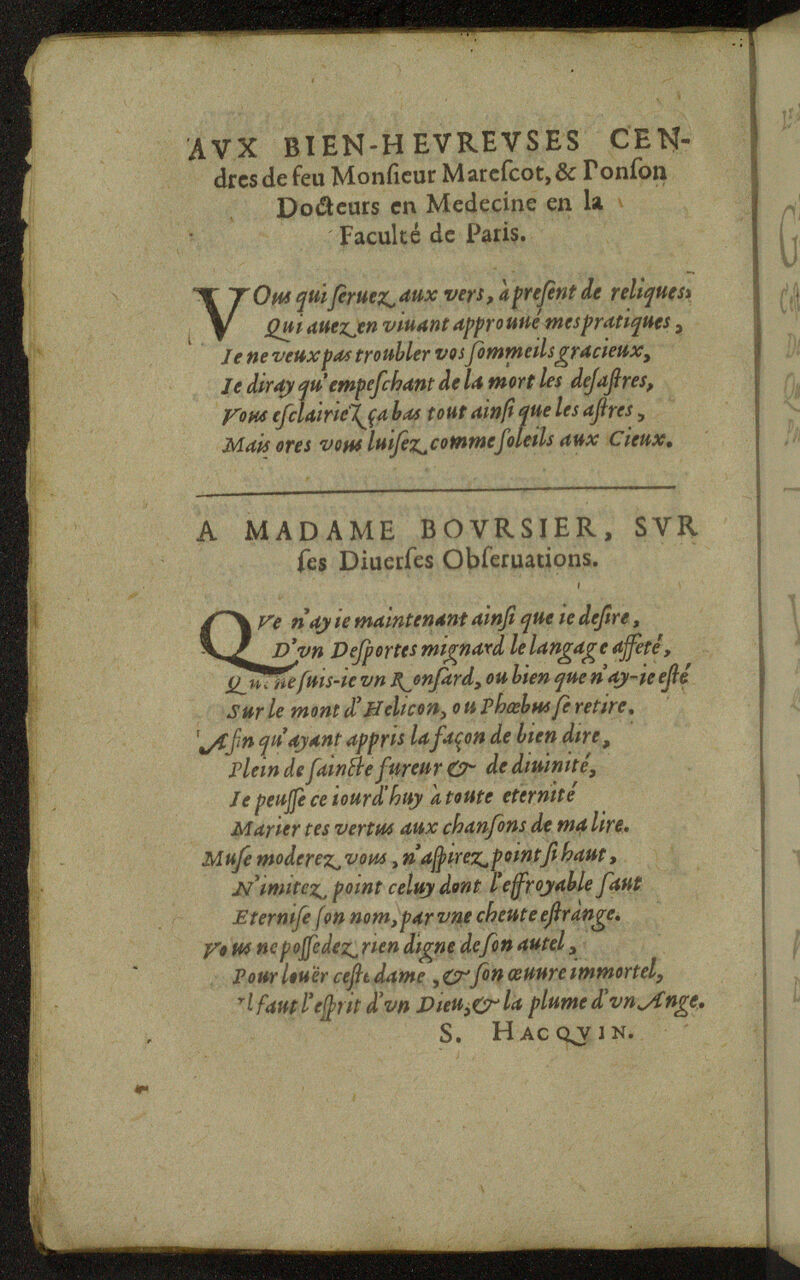 AVX BIEN-HEVREVSES CEN-
dres de feu Monſieur Mareſcot, & Ponſon
Docteurs en Medecine en la
Faculté de Paris.
VOus qui ſeruez aux vers, à preſent de reliques,
Qui auez en viuant approuué mes pratiques,
Ie ne veux pas troubler vos ſommeils gracieux,
Ie diray qu'empeſchant de la mort les deſaſtres,
Vous eſclairiez ça bas tout ainſi que les aſtres,
Mais ores vous luiſez comme ſoleils aux Cieux.
A MADAME BOVRSIER, SVR
ſes Diuerſes Obſeruations.
QVe n'ay ie maintenant ainſi que ie deſire,
D'vn Deſportes mignard le langage affeté,
Que ne ſuis-ie vn Ronſard, ou bien que n'ay-ie eſté
Sur le mont d'Helicon, ou Phœbus ſe retire.
Afin qu'ayant appris la façon de bien dire,
Plein de ſaincte fureur & de diuinité,
Ie peuſſe ce iourd'huy à toute eternité
Marier tes vertus aux chanſons de ma lire.
Muſe moderez vous, n'aſpirez point ſi haut,
N'imitez point celuy dont l'effroyable ſaut
Eterniſe ſon nom, par vne cheute eſtrange.
Vous ne poſſedez rien digne de ſon autel,
Pour louër ceſte dame, & ſon œuure immortel,
Il faut l'eſprit d'vn Dieu, & la plume d'vn Ange.
S. HACQVIN.